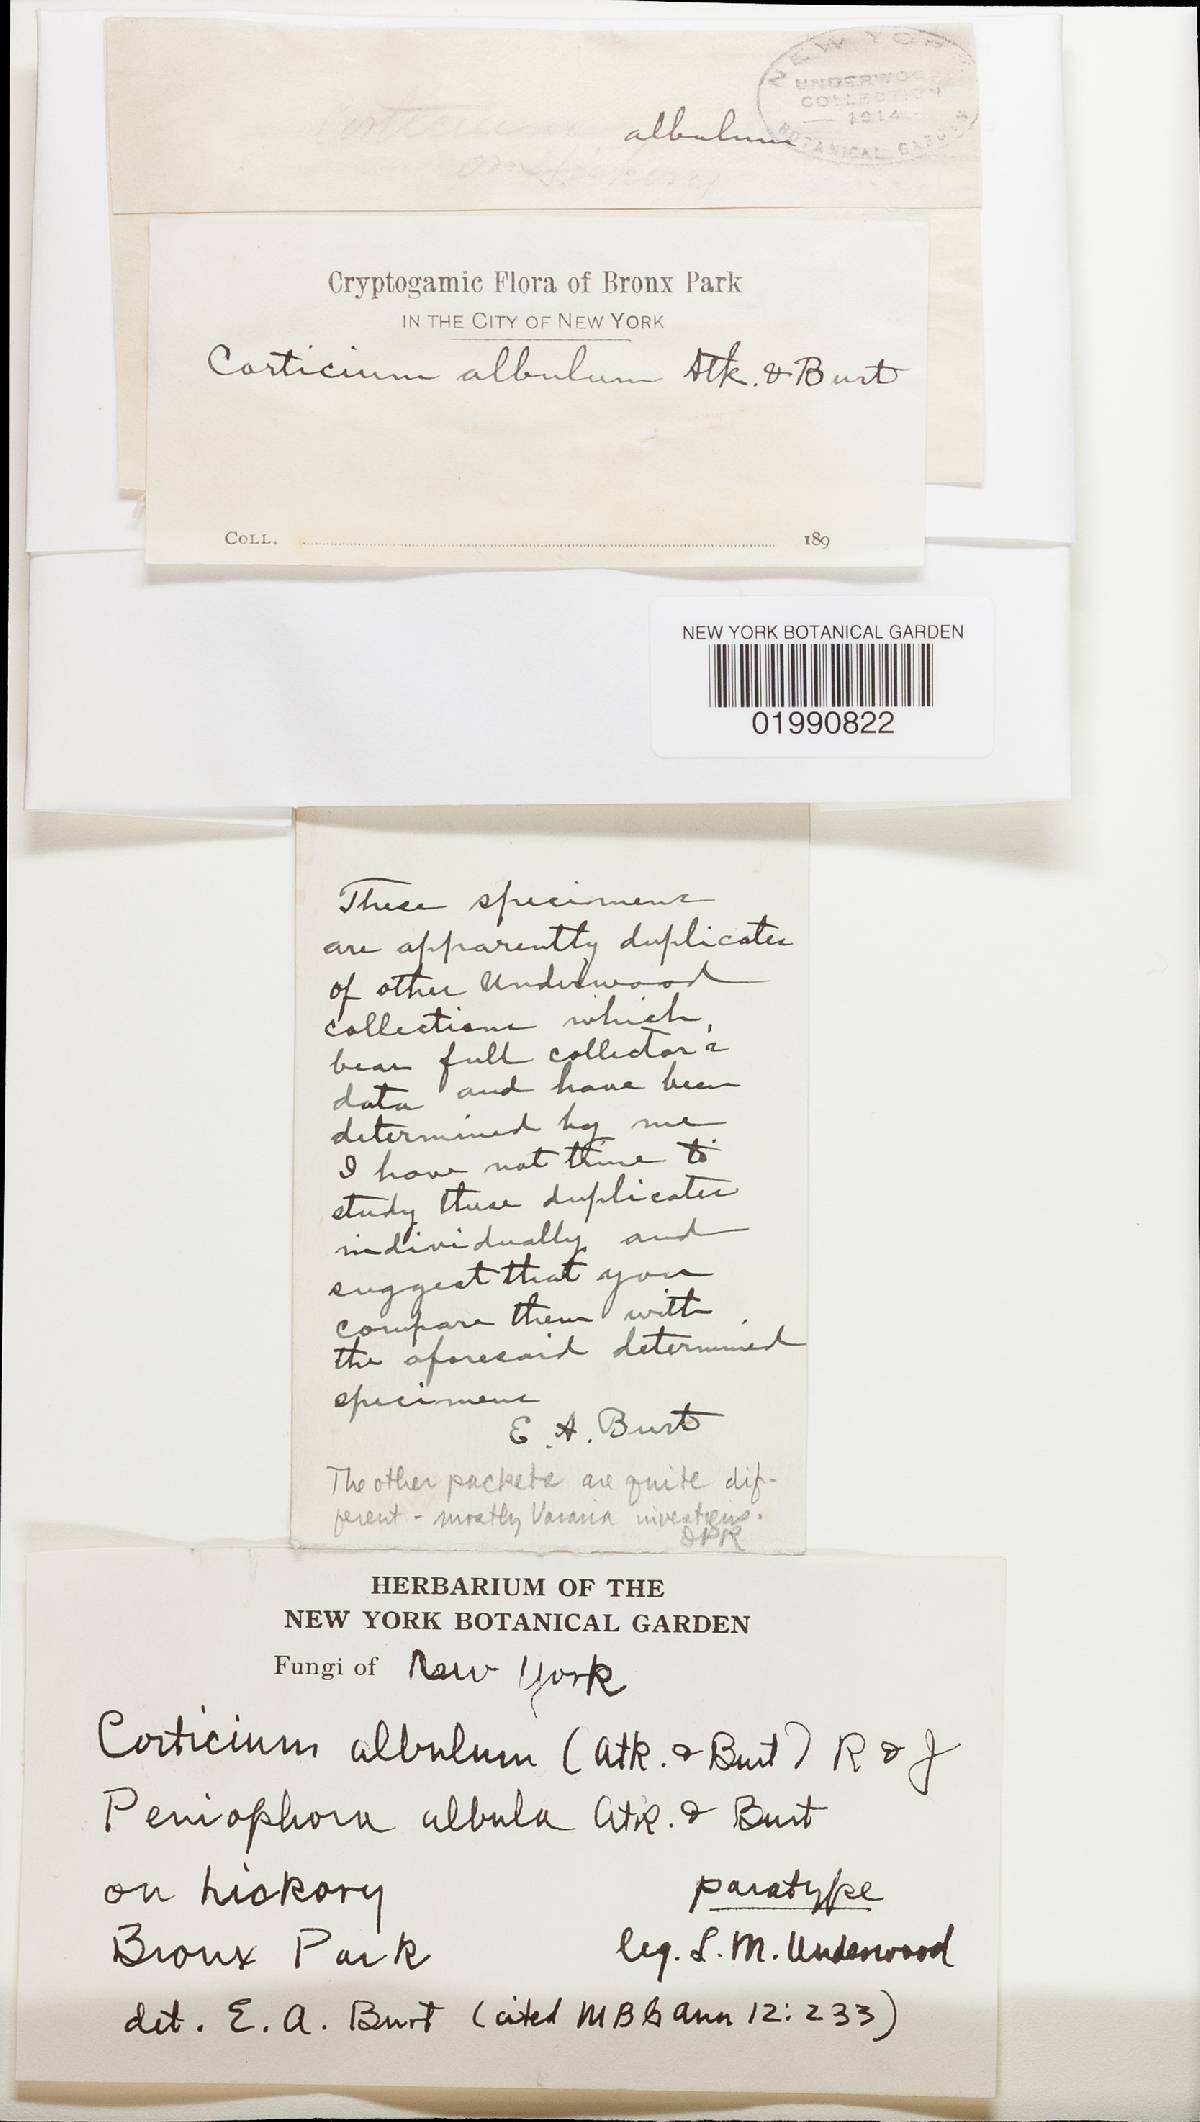 NEW YORK
UNDERWOOD
COLLECTION
1914
BOTANICAL GARDEN
Corticium albulum
on hickory
Cryptogamic Flora of Bronx Park
IN THE CITY OF NEW YORK
Corticium albulum Atk. & Burt
COLL. 189
NEW YORK BOTANICAL GARDEN
01990822
These specimens
are apparently duplicates
of other Underwood
collections which
bear full collector's
data and have been
determined by me
I have not time to
study these duplicates
individually and
suggest that you
compare them with
the aforesaid determined
specimens
E. A. Burt
The other packets are quite dif-
ferent - mostly Vararia investiens.
DPR
HERBARIUM OF THE
NEW YORK BOTANICAL GARDEN
Fungi of New York
Corticium albulum (Atk. & Burt) R & J
Peniophora albula Atk. & Burt
on hickory paratype
Bronx Park leg. L. M. Underwood
det. E. A. Burt (cited MBG Ann 12: 233)